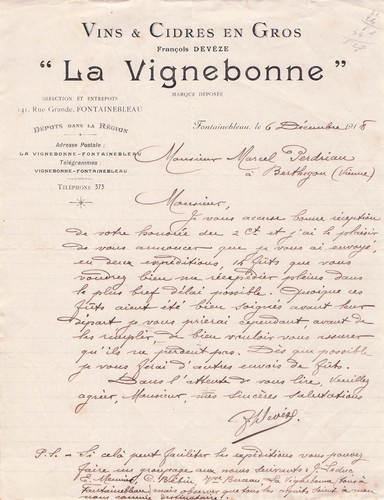 VINS & CIDRES EN GROS
François DEVÈZE
“ La Vignebonne ”
MARQUE DÉPOSÉE
DIRECTION ET ENTREPOTS
141, Rue Grande, FONTAINEBLEAU
DÉPOTS DANS LA RÉGION
Adresse Postale :
LA VIGNEBONNE-FONTAINEBLEAU
Télégrammes :
VIGNEBONNE-FONTAINEBLEAU
TÉLÉPHONE 375
Fontainebleau, le 6 Décembre 1918
Monsieur Marcel Perdriau
à Berthegon (Vienne)
Monsieur,
Je vous accuse bonne réception
de votre honorée du 2 Ct et j'ai le plaisir
de vous annoncer que je vous ai envoyé,
en deux expéditions, 14 fûts que vous
voudrez bien me réexpédier pleins dans
le plus bref délai possible. Quoique ces
fûts aient été bien soignés avant leur
départ je vous prierai cependant, avant de
les remplir, de bien vouloir vous assurer
qu'ils ne perdent pas. Dès que possible
je vous ferai d'autres envois de fûts.
Dans l'attente de vous lire, veuillez
agréer, Monsieur, mes sincères salutations
F. Devèze
P.S. - Si celà peut faciliter les expéditions vous pouvez
faire un groupage aux noms suivants : J. Leduc
E. Meunier, C. Bertin, Vve Bureau, La Vignebonne tous à
Fontainebleau, mais observer que tous les droits soient à mon
nom comme destinataire.